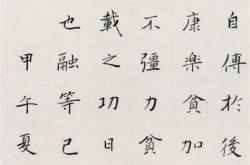 自傳於後
康樂貧加
不彊力貧
載之功日
也融等已
甲午夏